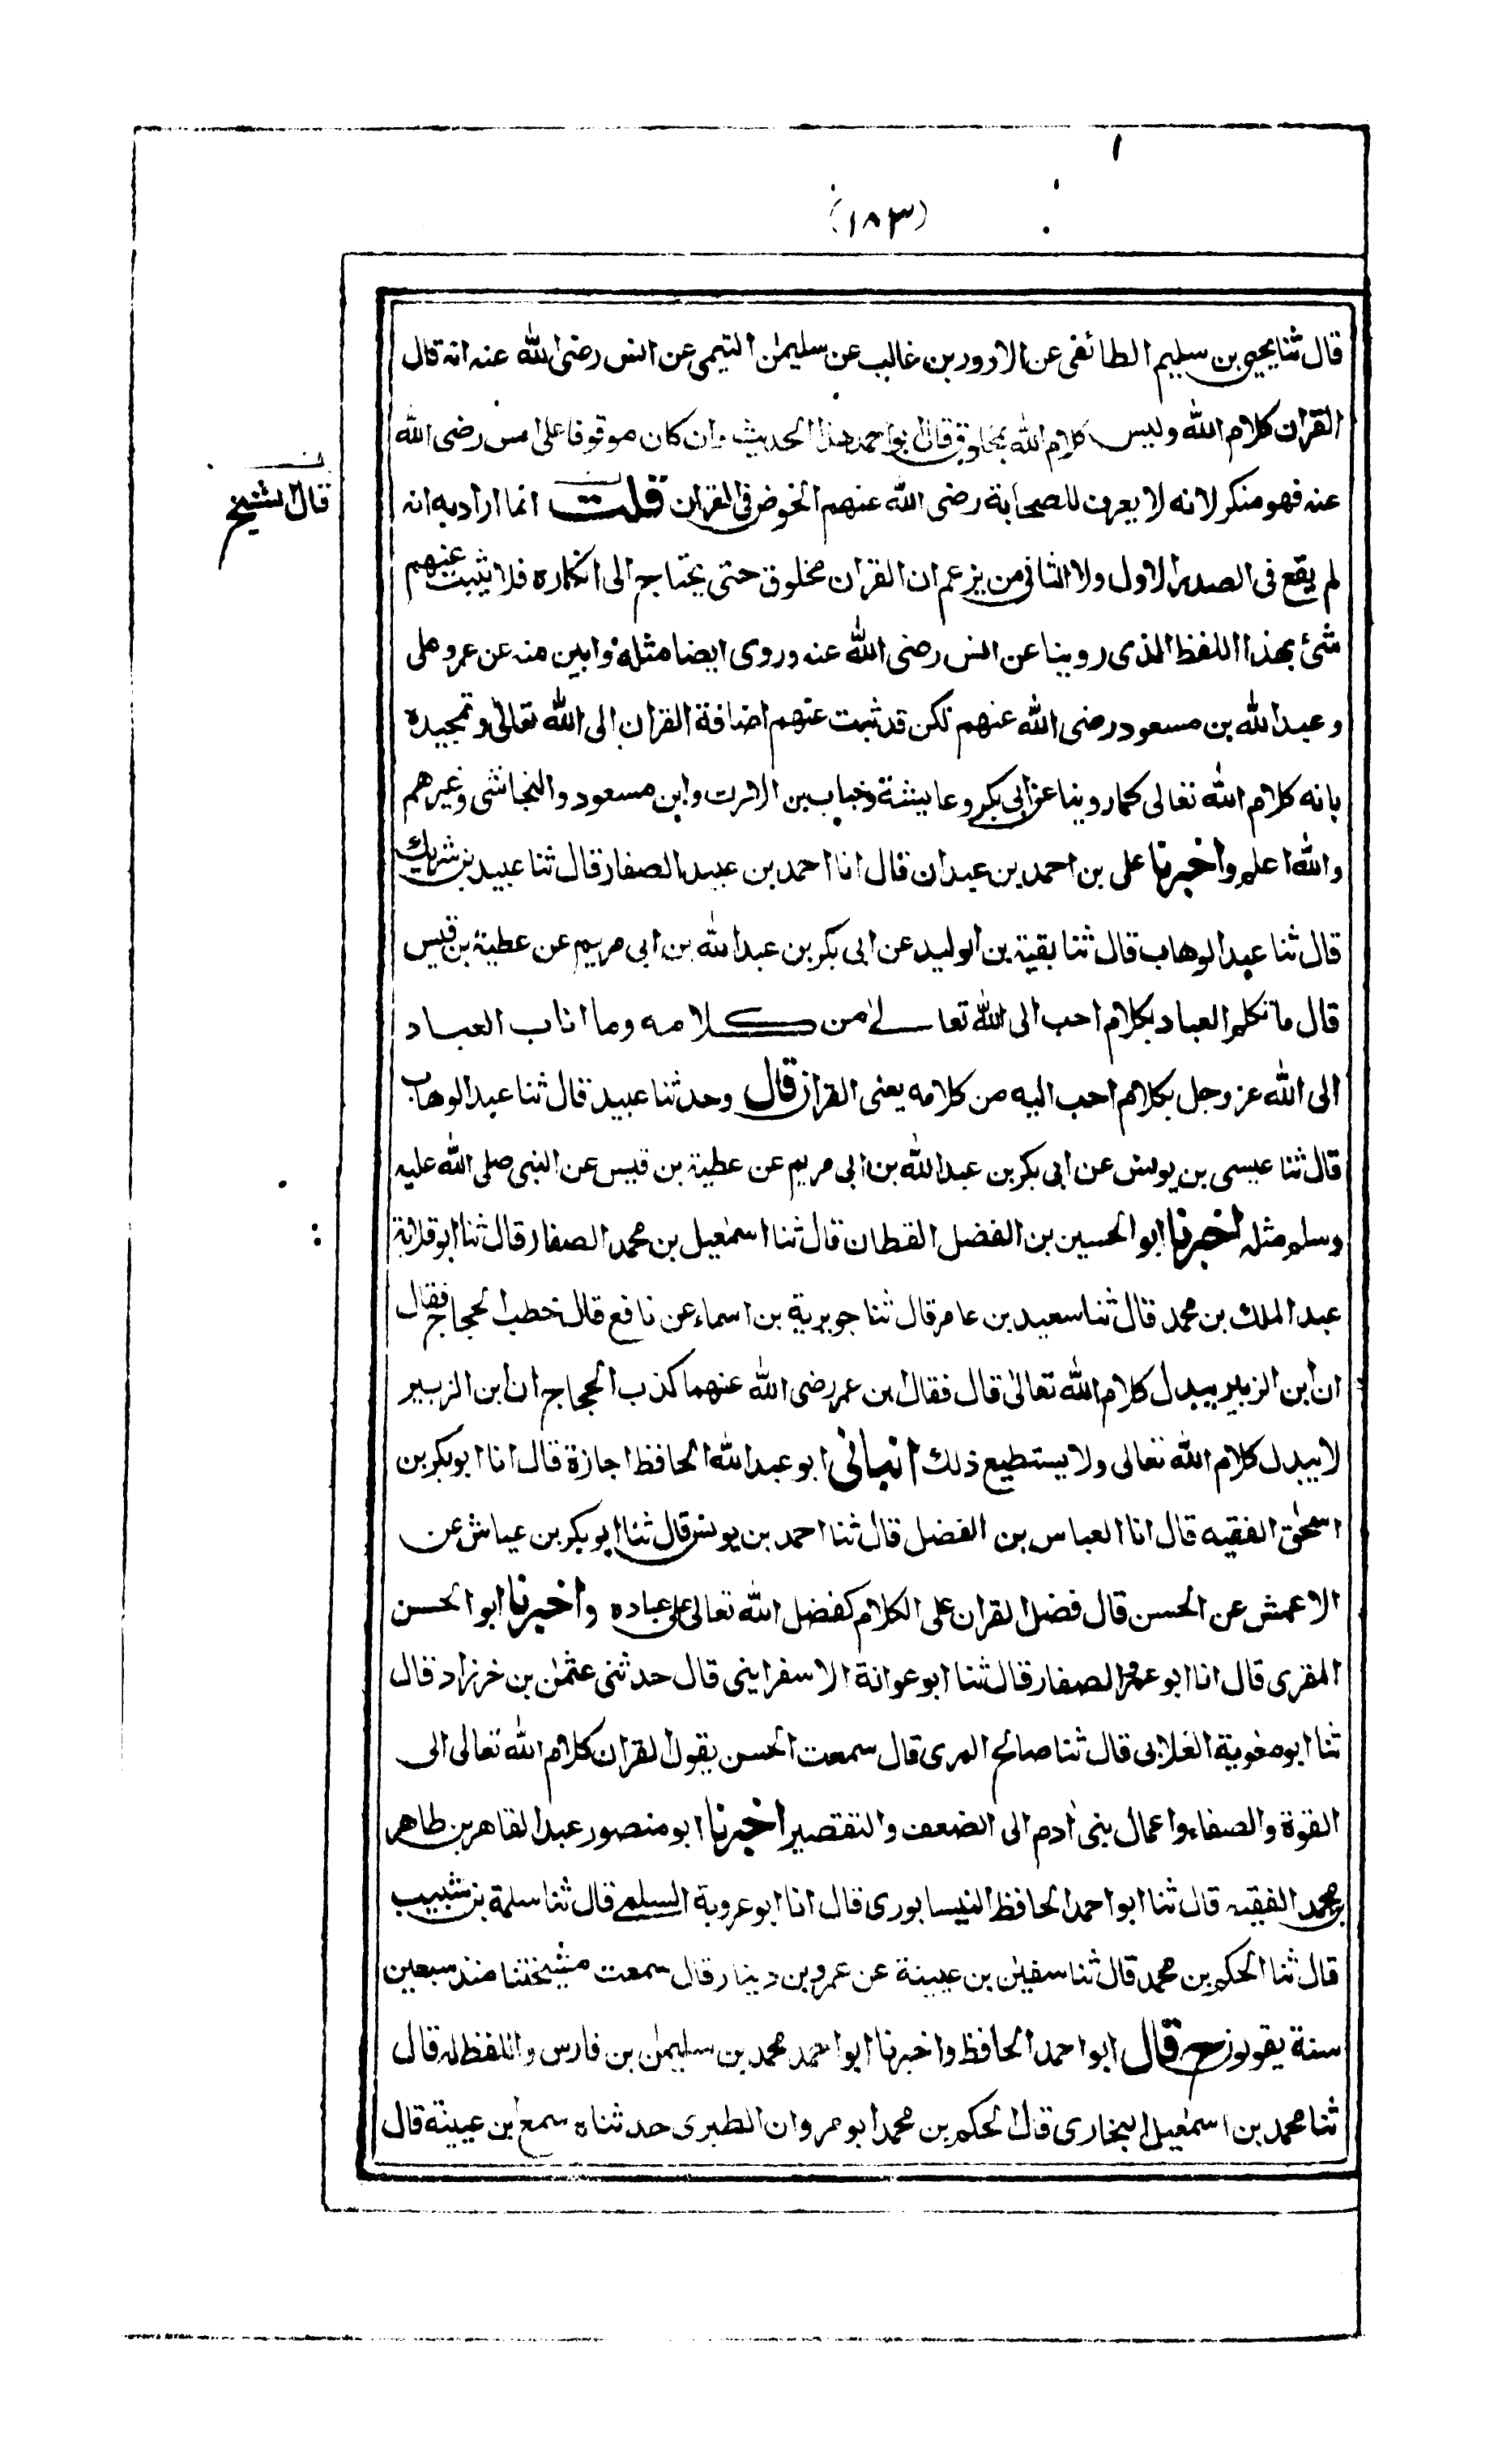 (١٨٣)
قال ثنا يحيى بن سليم الطائفى عن الازور بن غالب عن سليمٰن التيمى عن انس رضى الله عنه انه قال
القران كلام الله وليس كلام الله بمخلوق قال ابو احمد هذا الحديث وان كان موقوفا على انس رضى الله
عنه فهو منكر لانه لا يعرف للصحابة رضى الله عنهم الخوض فى القران قلت انما اراد به انه
قال الشيخ
لم يقع فى الصدر الاول ولا الثانى من يزعم ان القران مخلوق حتى يحتاج الى انكاره فلا يثبت عنهم
شئ بهذا اللفظ الذى روينا عن انس رضى الله عنه وروى ايضا مثله وابين منه عن عمر وعلى
وعبد الله بن مسعود رضى الله عنهم لكن قد ثبت عنهم اضافة القران الى الله تعالى وتمجيده
بانه كلام الله تعالى كما روينا عن ابى بكر وعايشة وخباب بن الارت وابن مسعود والنجاشى وغيرهم
والله اعلم واخبرنا على بن احمد بن عبدان قال انا احمد بن عبيد الصفار قال ثنا عبيد بن شريك
قال ثنا عبد الوهاب قال ثنا بقية بن الوليد عن ابى بكر بن عبد الله بن ابى مريم عن عطية بن قيس
قال ما تكلم العباد بكلام احب الى الله تعالےٰ من كلامه وما اناب العباد
الى الله عز وجل بكلام احب اليه من كلامه يعنى القران قال وحدثنا عبيد قال ثنا عبد الوهاب
قال ثنا عيسى بن يونس عن ابى بكر بن عبد الله بن ابى مريم عن عطية بن قيس عن النبى صلى الله عليه
وسلم مثله اخبرنا ابو الحسين بن الفضل القطان قال ثنا اسمٰعيل بن محمد الصفار قال ثنا ابو قلابة
عبد الملك بن محمد قال ثنا سعيد بن عامر قال ثنا جويرية بن اسماء عن نافع قال خطب الحجاج فقال
ان ابن الزبير يبدل كلام الله تعالىٰ قال فقال ابن عمر رضى الله عنهما كذب الحجاج ان ابن الزبير
لا يبدل كلام الله تعالى ولا يستطيع ذلك انبانى ابو عبد الله الحافظ اجازة قال انا ابو بكر بن
اسحٰق الفقيه قال انا العباس بن الفضل قال ثنا احمد بن يونس قال ثنا ابو بكر بن عياش عن
الاعمش عن الحسن قال فضل القران على الكلام كفضل الله تعالى على عباده واخبرنا ابو الحسن
المقرى قال انا ابو عمرو الصفار قال ثنا ابو عوانة الاسفراينى قال حدثنى عثمٰن بن خرزاد قال
ثنا ابو معٰوية الغلابى قال ثنا صالح المرى قال سمعت الحسن يقول القران كلام الله تعالى الى
القوة والصفاء واعمال بنى اٰدم الى الضعف والتقصير اخبرنا ابو منصور عبد القاهر بن طاهر
بن محمد الفقيه قال ثنا ابو احمد الحافظ النيسابورى قال انا ابو عروبة السلمے قال ثنا سلمة بن شبيب
قال ثنا الحكم بن محمد قال ثنا سفيٰن بن عيينة عن عمرو بن دينار قال سمعت مشيختنا منذ سبعين
سنة يقولون ح قال ابو احمد الحافظ واخبرنا ابو احمد محمد بن سليمٰن بن فارس واللفظ له قال
ثنا محمد بن اسمٰعيل البخارى قال الحكم بن محمد ابو مروان الطبرى حدثناه سمع ابن عيينة قال